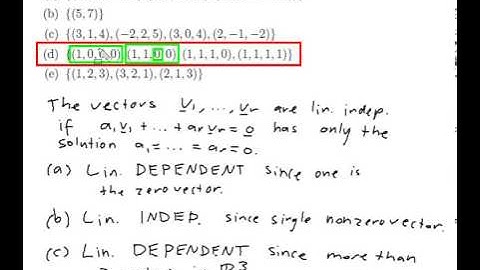 (b) {(5, 7)}
(c) {(3, 1, 4), (−2, 2, 5), (3, 0, 4), (2, −1, −2)}
(d) {(1, 0, 0, 0) (1, 1, 0, 0) (1, 1, 1, 0), (1, 1, 1, 1)}
(e) {(1, 2, 3), (3, 2, 1), (2, 1, 3)}
The vectors v₁, ..., vr are lin. indep.
if a₁v₁ + ... + arvr = 0 has only the
solution a₁ = ... = ar = 0.
(a) Lin. DEPENDENT since one is
the zero vector.
(b) Lin. INDEP. since single nonzero vector.
(c) Lin. DEPENDENT since more than